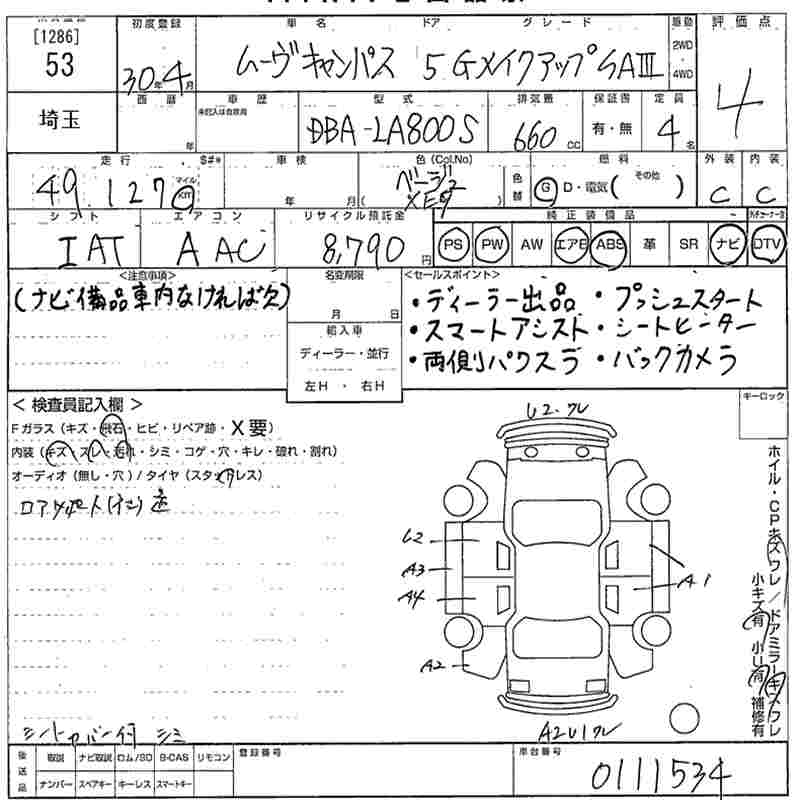 初度登録 車名 ドア グレード 駆動 評価点
[1286]
53
30年4月 ムーヴキャンパス 5 GメイクアップSAⅢ 2WD・4WD
4
埼玉
西暦 車歴 型式 排気量 保証書 定員
年 未記入は自家用 DBA-LA800S 660cc 有・無 4名
走行 $#* 車検 色(Col.No) 燃料 外装 内装
49,127 マイル KM 年 月 ベージュ 色替 G D・電気 (その他) C C
シフト エアコン リサイクル預託金 純正装備品
IAT AAC 8,790円 PS PW AW エアB ABS 革 SR ナビ DTV
<注意事項> 名変期限 <セールスポイント>
(ナビ備品車内なければ欠)
月 日
・ディーラー出品 ・プッシュスタート
輸入車
・スマートアシスト ・シートヒーター
ディーラー・並行
・両側パワスラ ・バックカメラ
左H ・ 右H
<検査員記入欄> キーロック
Fガラス (キズ・飛石・ヒビ・リペア跡・X要)
内装 (キズ・スレ・汚れ・シミ・コゲ・穴・キレ・破れ・割れ)
オーディオ (無し・穴) / タイヤ (スタッドレス)
U2.ワレ
U2
A3
A4
A1
A2
A2U1ワレ
ホイル・CPキズワレ/ドアミラーキズワレ
小キズ有 小U有 補修有
シートカバー付 シミ
後送品 取説 ナビ取説 ロム/SD B-CAS リモコン 登録番号 車台番号
ナンバー スペアキー キーレス スマートキー 0111534